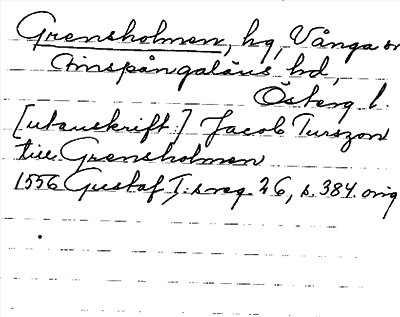 Grensholmen, hg, Vånga sn
Finspångaläns hd,
Österg l.
[utanskrift:] Jacob Turszon
till Grensholmen
1556 Gustaf I:s reg. 26, s. 384 orig